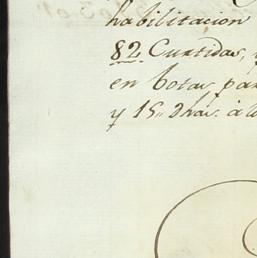 habilitacion
82 Curtidas, y
en botas par
y 15" dhas. á